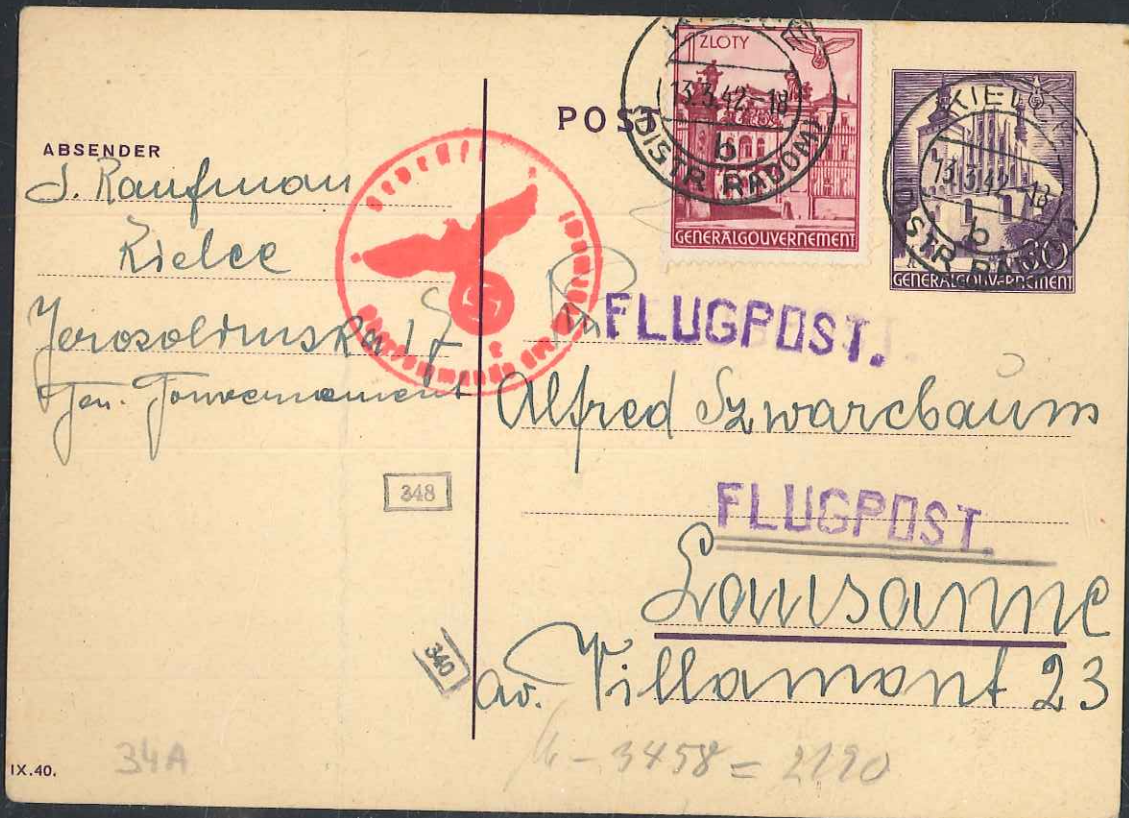 ABSENDER
J. Kaufman
Kielce
Jerozolimska 17
Gen. Gouvernement
348
340
34A
IX.40.
POST
1 ZLOTY
13.3.42.-18
b
(DISTR RADOM)
GENERALGOUVERNEMENT
KIELCE
13.3.42.-18
b
DISTR RADOM
30
GENERALGOUVERNEMENT
FLUGPOST.
Alfred Szwarcbaum
FLUGPOST.
Lausanne
av. Villamont 23
3458 = 2190